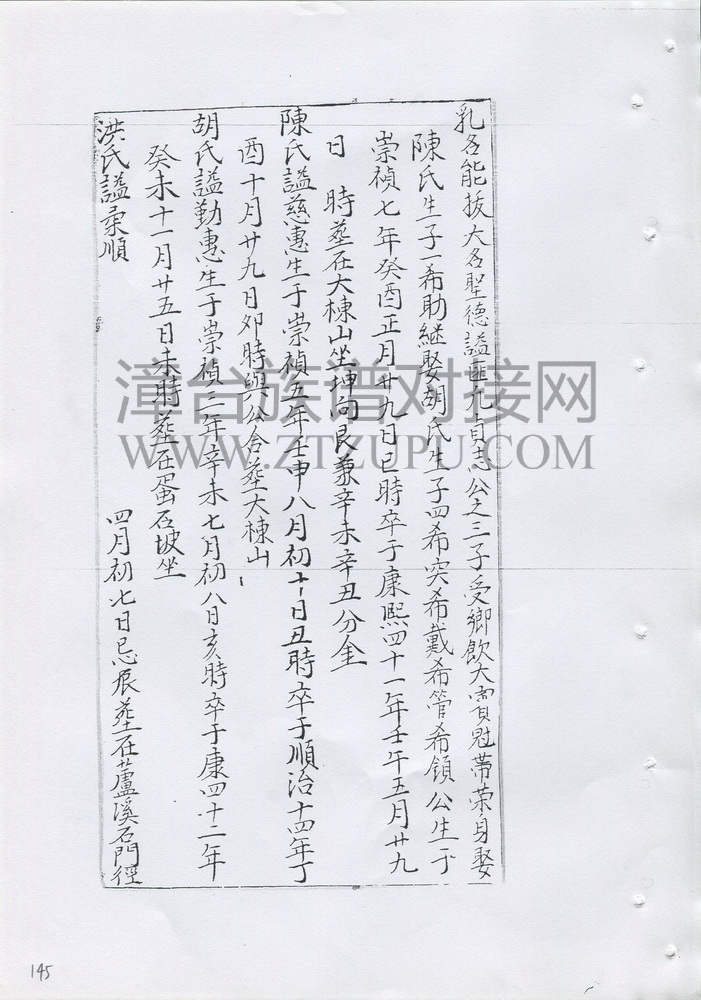 乳名能拔大名聖德謚匪九貞志公之三子受鄉飲大賓冠帶榮身娶
陳氏生子一希助継娶胡氏生子四希突希戴希管希領公生于
崇禎七年癸酉正月廿九日巳時卒于康熙四十一年壬午五月廿九
日 時葬在大棟山坐坤向艮兼辛未辛丑分金
陳氏謚慈惠生于崇禎五年壬申八月初十日丑時卒于順治十四年丁
酉十月廿九日夘時與公合葬大棟山
胡氏謚勤惠生于崇禎三年辛未七月初八日亥時卒于康四十二年
癸未十一月廿五日未時葬在蛋石坡坐
洪氏謚柔順 四月初七日忌辰葬在芦溪石門徑
漳台族谱对接网
WWW.ZTZUPU.COM
145